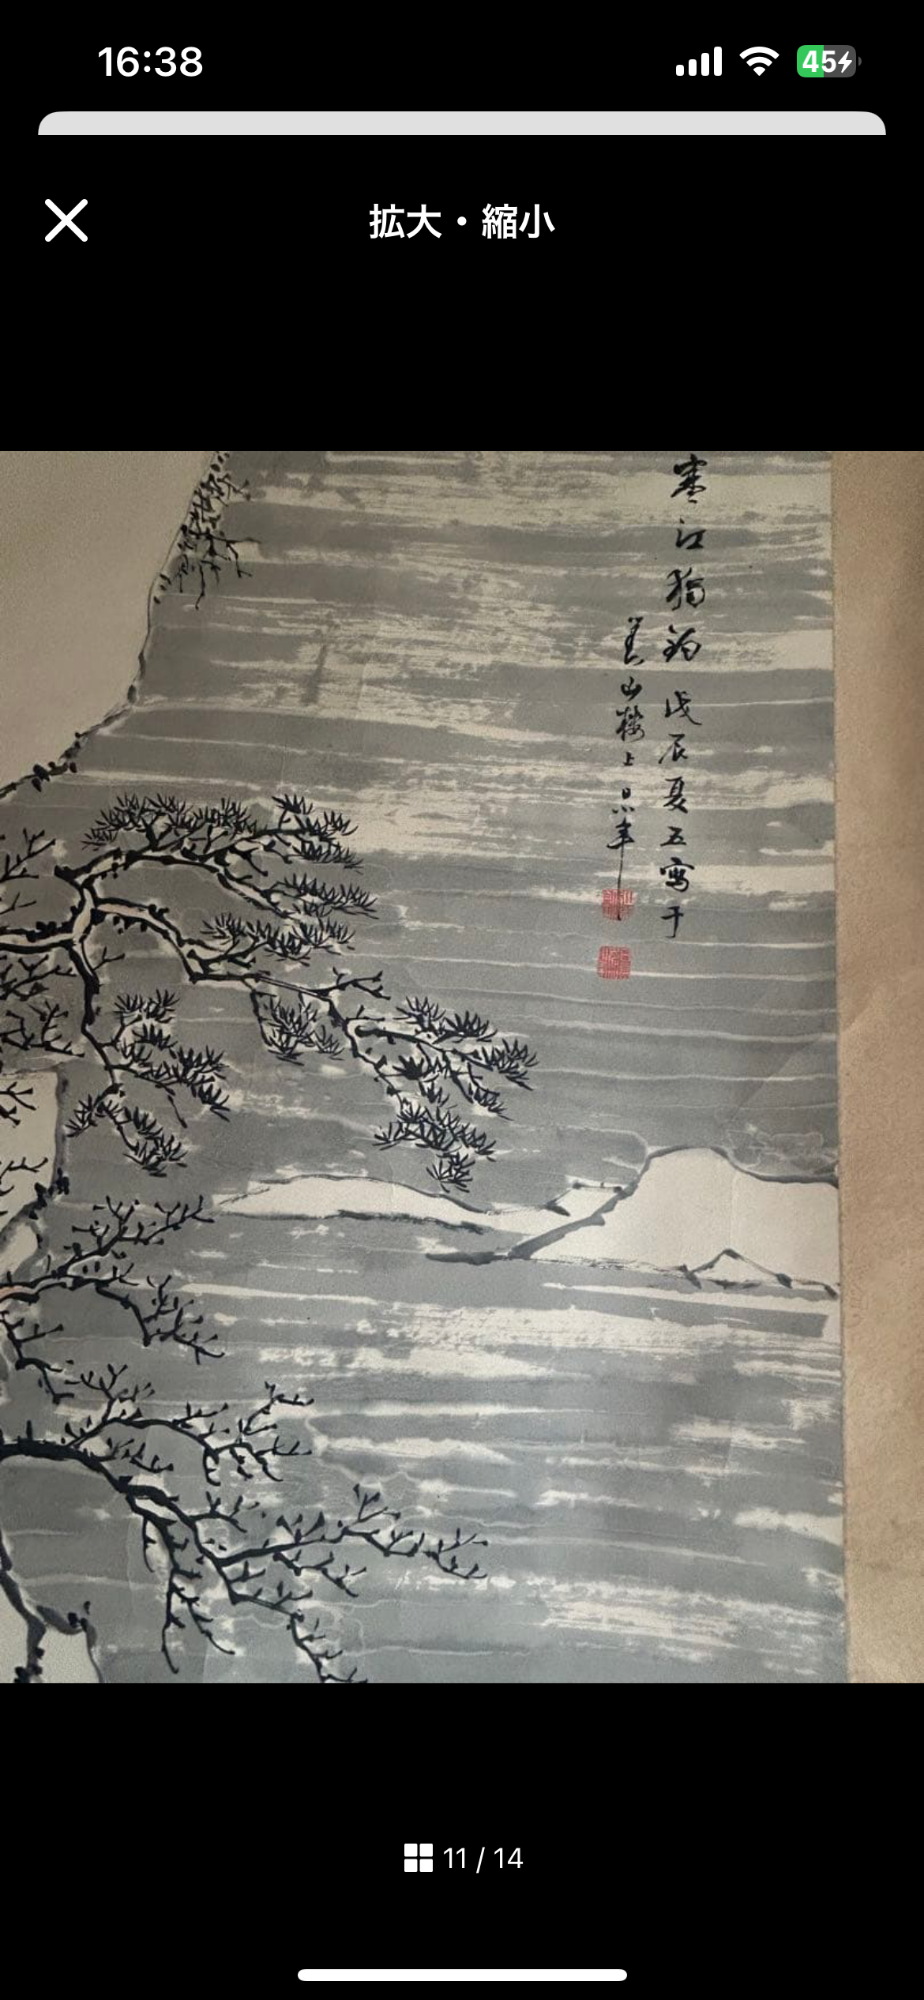 16:38
45
拡大・縮小
寒江獨釣 戊辰夏五寫于
山樓上
11 / 14